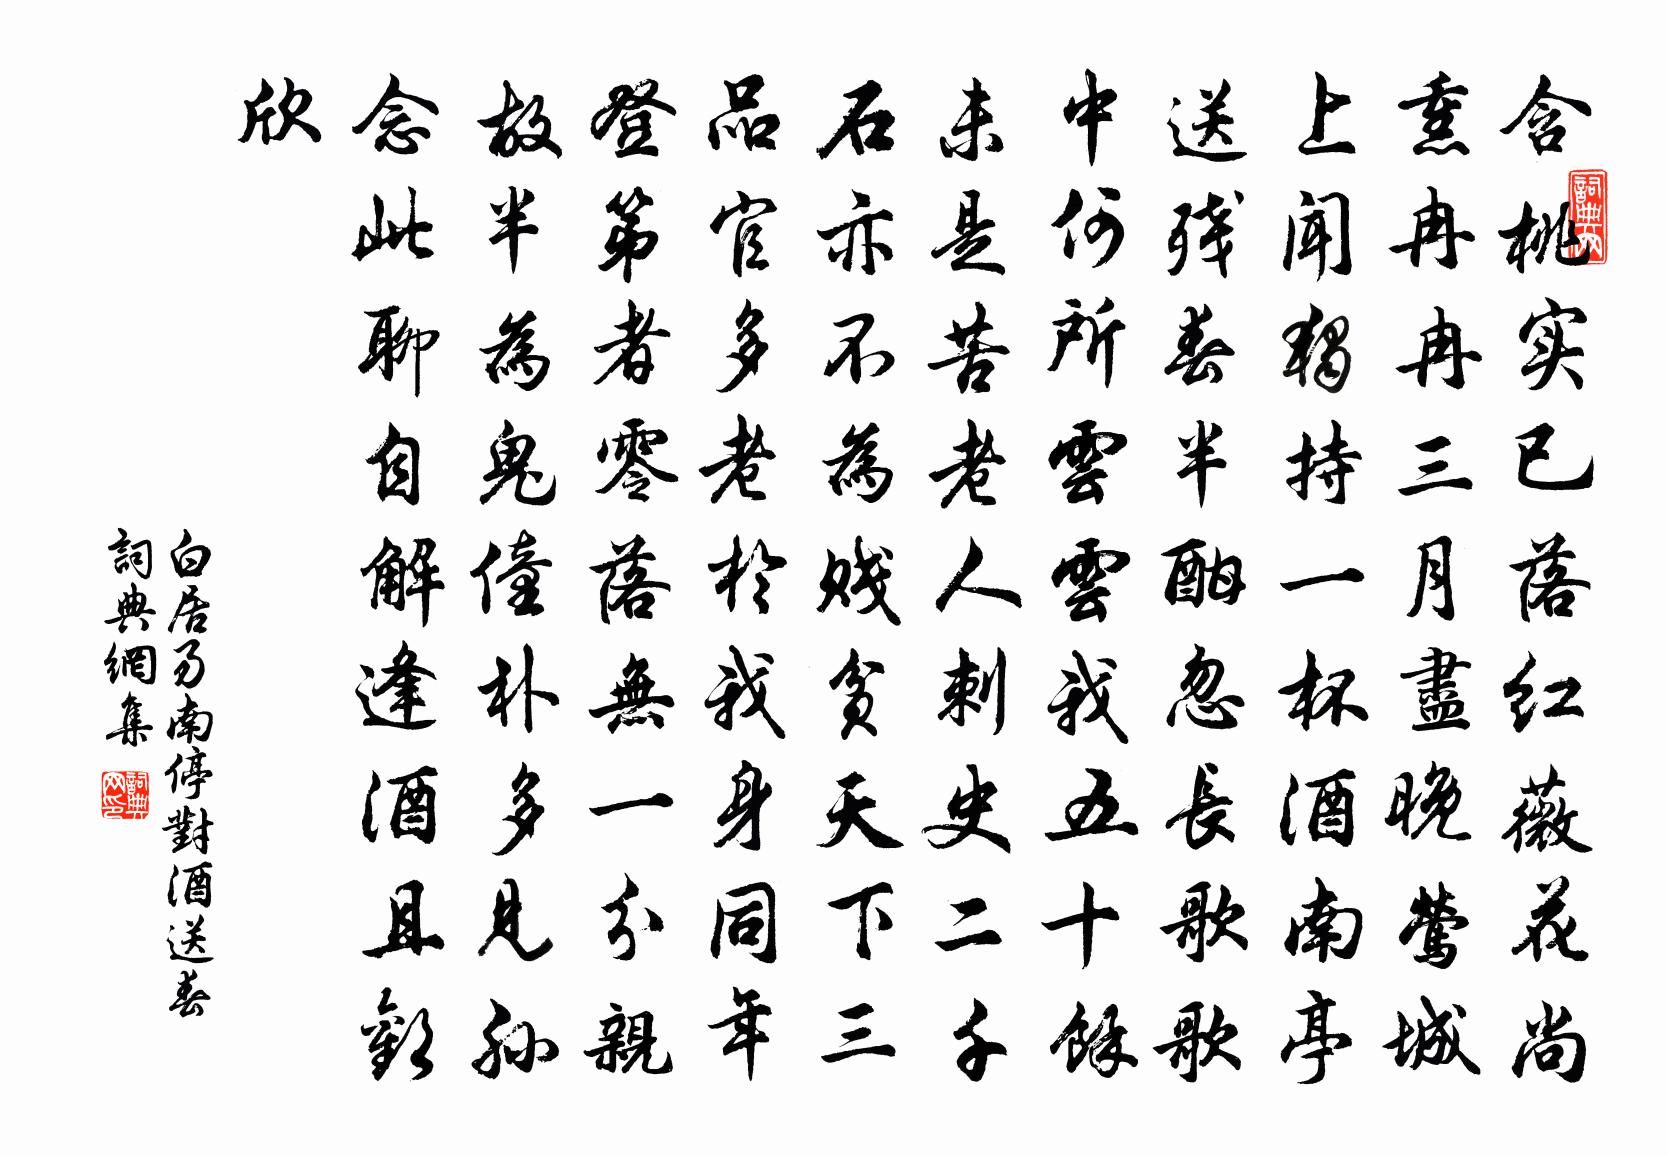 含桃实已落红薇花尚
熏冉冉三月盡晚鶯城
上闻獨持一杯酒南亭
送残春半酣忽長歌歌
中何所雲雲我五十餘
未是苦老人刺史二千
石亦不為贱贫天下三
品官多老於我身同年
登第者零落無一分親
故半為鬼僮朴多見孙
念此聊自解逢酒且歡
欣
白居易南停對酒送春
詞典網集
詞典网
詞典网印